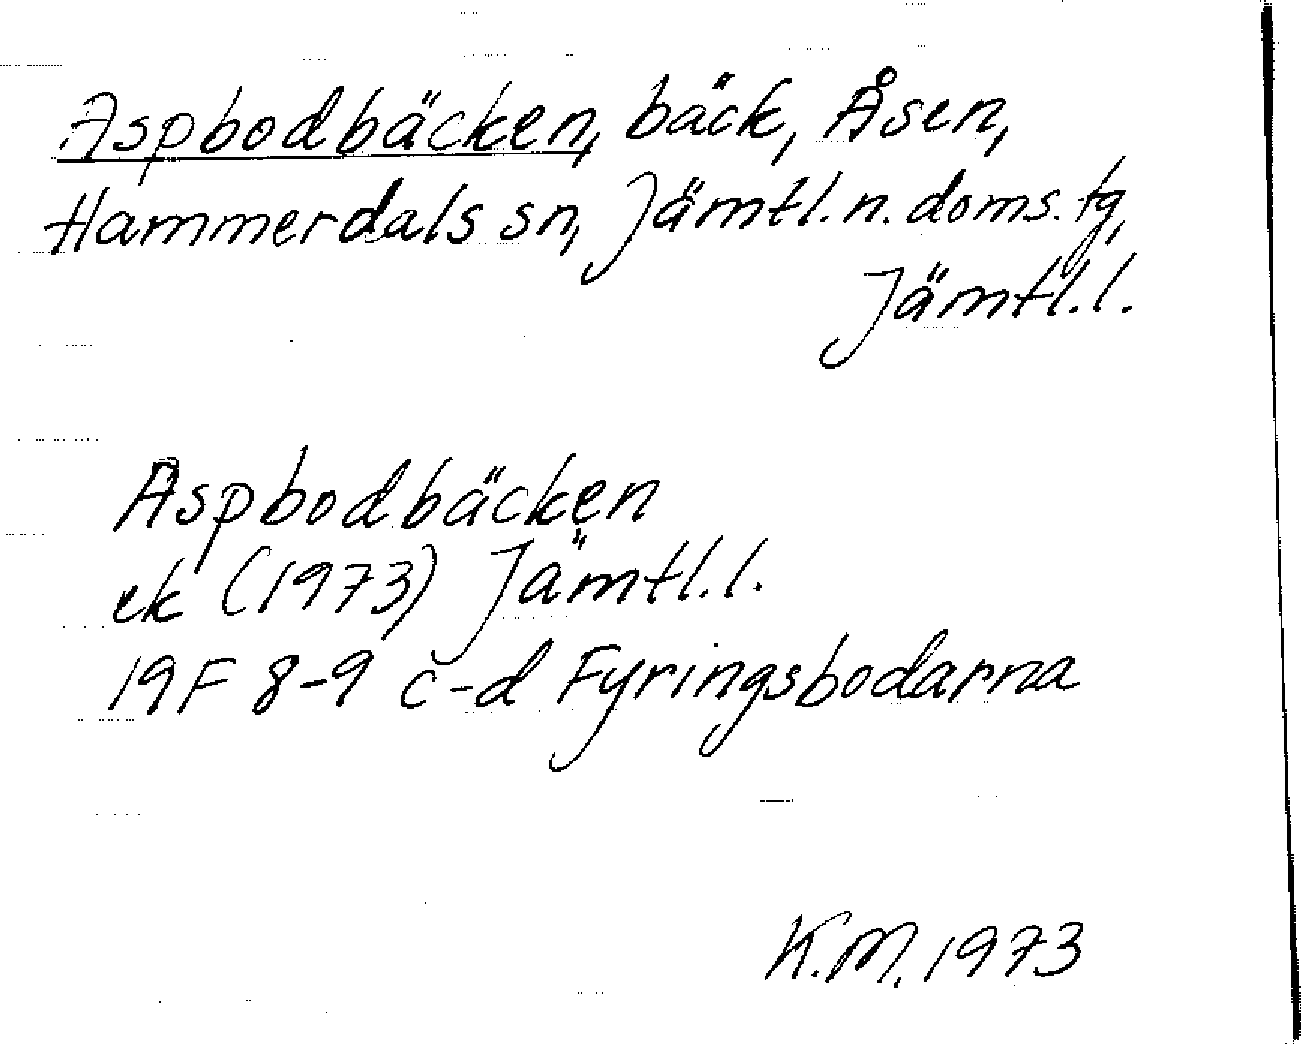 Aspbodbäcken, bäck, Åsen,
Hammerdals sn, Jämtl. n. doms. tg,
Jämtl. l.
Aspbodbäcken
ek (1973) Jämtl. l.
19F 8-9 c-d Fyringsbodarna
K.M. 1973